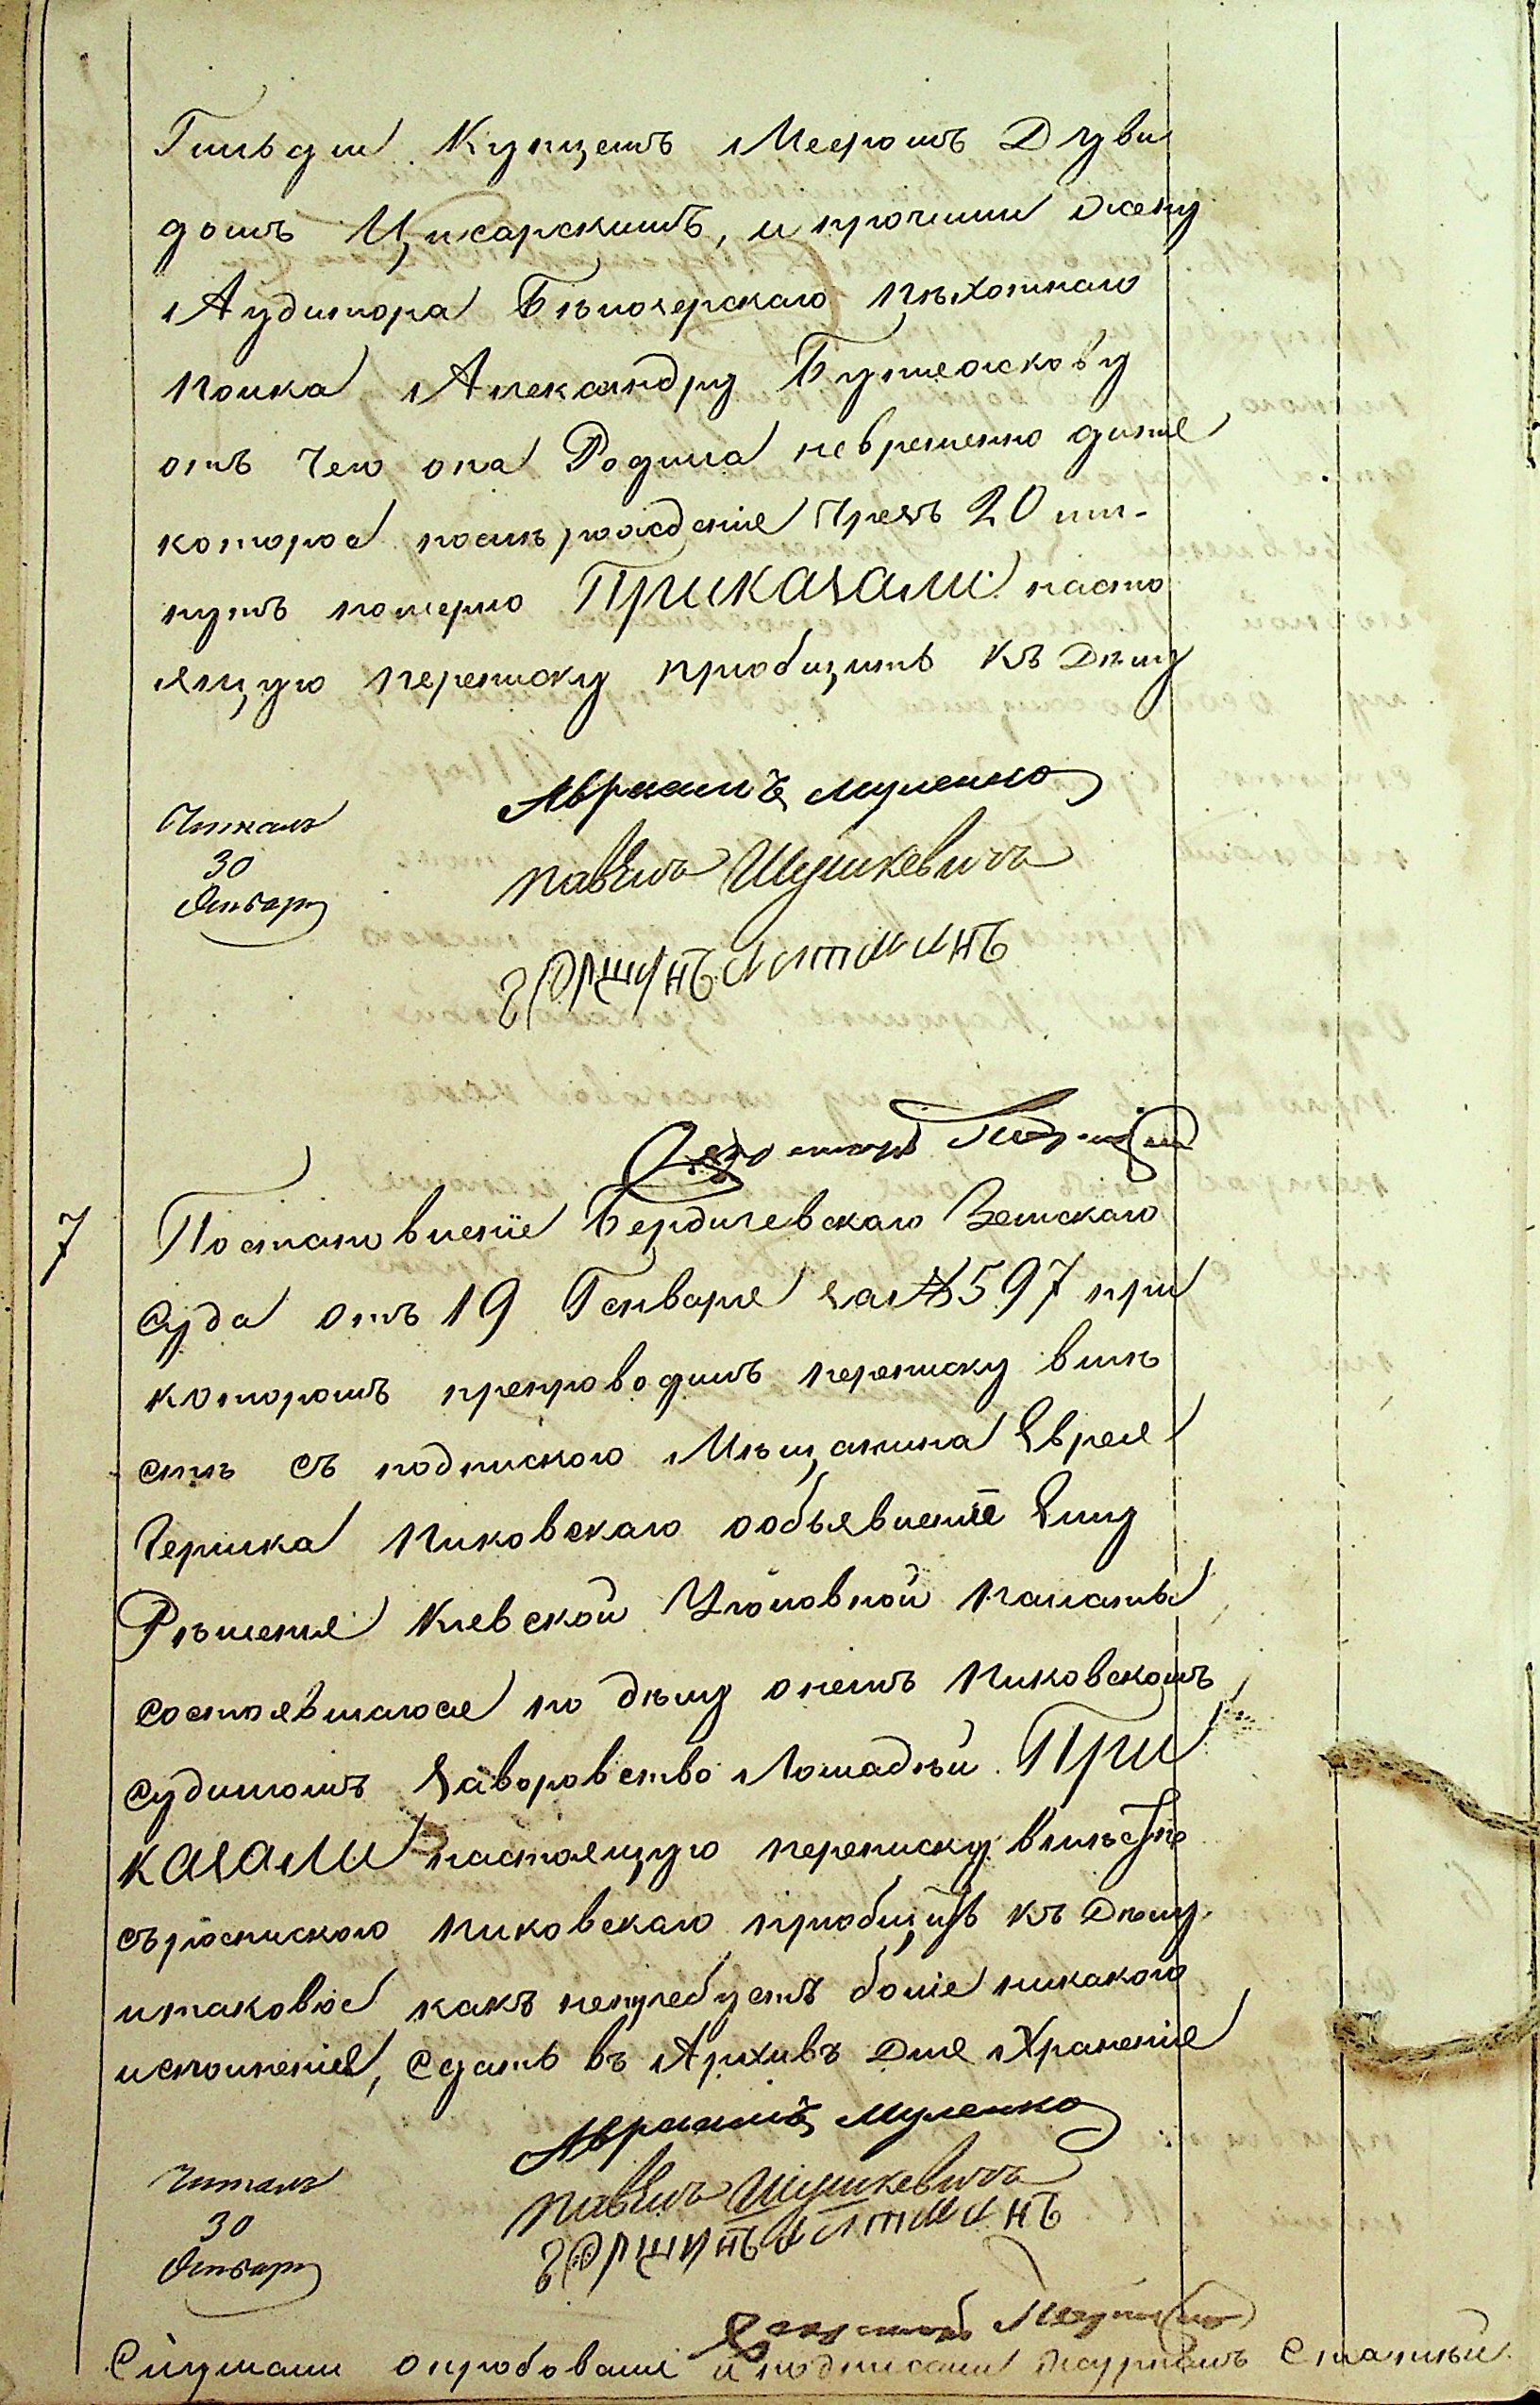 Гильдіи Купцемъ Мееромъ Дуви
домъ Цукарскимъ, и прочими жену
Аудитора Бѣлозерскаго пѣхотнаго
полка Александру
отъ чего она Родила невременно дитя
которое послѣ рожденіе чрезъ 20 ми-
нутъ померло Приказали насто
ящую переписку пріобщить къ дѣлу
Авраамъ Муленко
Читалъ
30
Января
Павелъ Шушкевичъ
Гершунъ Литминъ
Секретарь
7
Постановленіе Бердичевскаго Земскаго
Суда отъ 19 Генваря за № 597 при
которомъ препроводилъ переписку вмѣ
стѣ съ подпискою Мѣщанина Еврея
Гершка Пиковскаго ообъявленіе Ему
Рѣшенія Кіевской Уголовной палаты
состоявшагося по дѣлу онемъ Пиковскомъ
судимомъ Заворовство Лошадѣй. При
казали настоящую переписку вмѣстѣ
съ роспискою Пиковскаго пріобщить къ дѣлу
итаковое какъ нетребуетъ боліе никакого
исполненія, сдать въ Архивъ для Храненія
Авраамъ Муленко
Читалъ
30
Января
Павелъ Шушкевичъ
Гершунъ Литминъ
Секретарь
Слушали опробовали и подписали журналъ Статьѣй